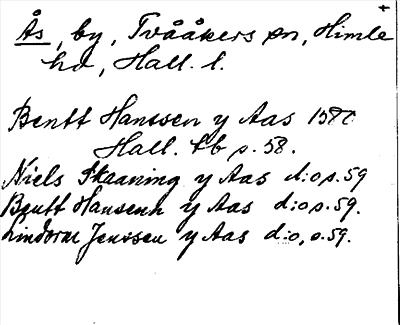 Ås, by, Tvååkers sn, Himle
hd, Hall. l.
Bentt Hanssen y Aas 1580
Hall. tb s. 58.
Niels Skaaning y Aas d:o s. 59
Bentt Hansenn y Aas d:o s. 59.
Lindorm Jenssen y Aas d:o, s. 59.